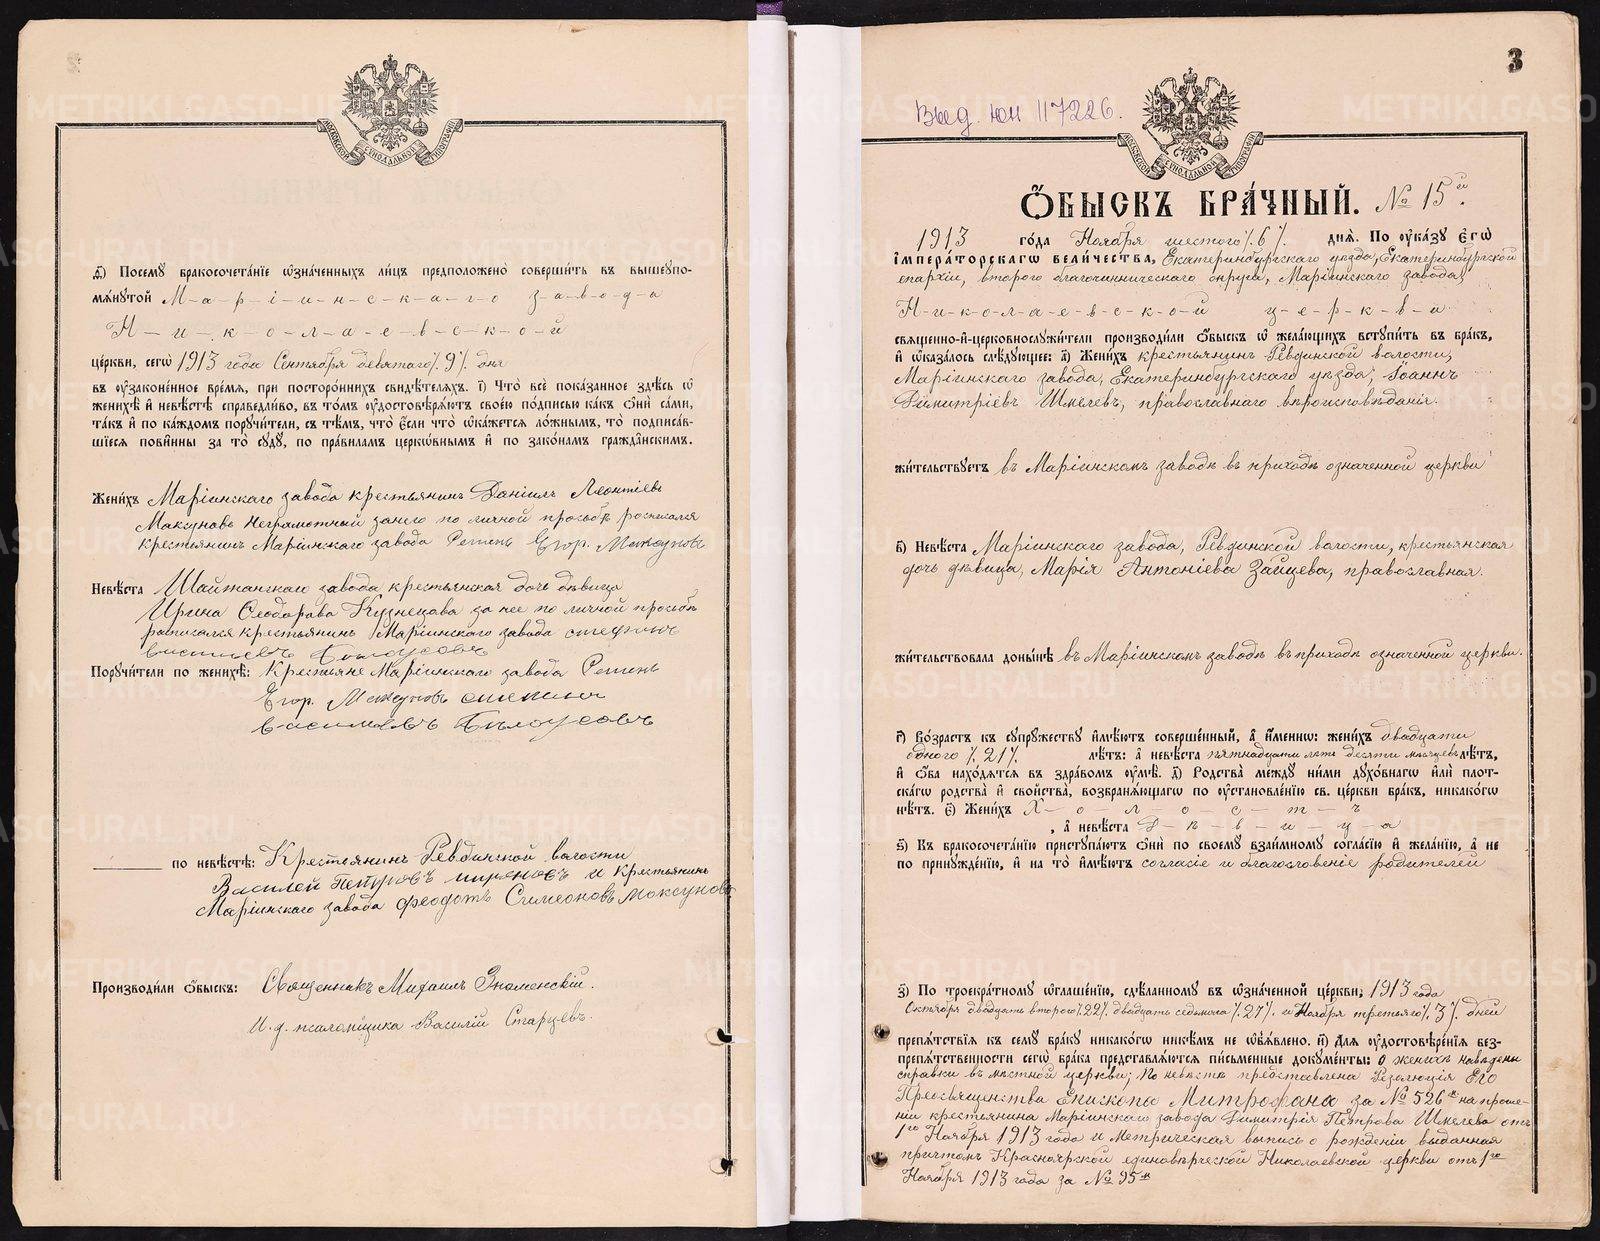 МОСКОВСКОЙ СѴНОДАЛЬНОЙ ТИПОГРАФІИ
Ѳ) Посемꙋ бракосочета́нїе ѡзна́ченныхъ ли́цъ предположено̀ соверши́ть въ вышеꙋпо-
мѧ́нꙋтой М-а-р-і-и-н-с-к-а-г-о з-а-в-о-д-а
Н-и-к-о-л-а-е-в-с-к-о-й
це́ркви, сегѡ̀ 1913 года Сентября девятаго /. 9 /. дня
въ ᲂу҆зако́ненное вре́мѧ, при посторо́ннихъ свидѣ́телѧхъ. і҃) Что̀ всѐ пока́занное здѣ́сь ѡ҆
женихѣ̀ и҆ невѣ́стѣ справедли́во, въ то́мъ ᲂу҆достовѣрѧ́ютъ свое́ю по́дписью ка́къ ѻ҆нѝ са́ми,
та́къ и҆ по ка́ждомъ порꙋчи́тели, съ тѣ́мъ, что̀ є҆сли что̀ ѡ҆ка́жетсѧ ло́жнымъ, то̀ подписа́в-
шїесѧ пови́нны за то̀ сꙋдꙋ̀, по пра́виламъ церко́внымъ и҆ по зако́намъ гражда́нскимъ.
Жени́хъ Маріинскаго завода крестьянинъ Даніилъ Леонтіевъ
Максуновъ неграмотный за него по личной просьбѣ росписался
крестьянинъ Маріинскаго завода Егор. Максуновъ
Невѣ́ста Шайтанскаго завода крестьянская дочь дѣвица
Ирина Ѳеодорова Кузнецова за нее по личной просьбѣ
расписался крестьянинъ Маріинскаго завода стефанъ
васильевъ Бѣлоусовъ
Порꙋчи́тели по женихѣ̀: Крестьяне Маріинскаго завода
Егор. Максуновъ степанъ
васильевъ Бѣлоусовъ
по невѣ́стѣ: Крестьянинъ Ревдинской волости
Василей Петровъ и Крестьянинъ
Маріинскаго завода феодотъ Симеоновъ Моксуновъ
Производи́ли ѻ҆́быскъ: Священникъ Михаилъ Знаменскій.
И. д. псаломщика Василій Старцевъ.
3
Выд. юи 117226.
МОСКОВСКОЙ СѴНОДАЛЬНОЙ ТИПОГРАФІИ
Ѻ҆́БЫСКЪ БРА́ЧНЫЙ. № 15й.
1913 го́да Ноября шестого /. 6 /. днѧ̀. По ᲂу҆ка́зꙋ Є҆гѡ̀
і҆мпера́торскагѡ вели́чества, Екатеринбургскаго уѣзда, Екатеринбургской
епархіи, второго благочинническаго округа, Маріинскаго завода,
Н-и-к-о-л-а-е-в-с-к-о-й ц-е-р-к-в-и
сващенно-и҆-церковнослꙋжи́тели производи́ли ѻ҆́быскъ ѡ҆ жела́ющихъ встꙋпи́ть въ бра́къ,
и҆ ѡ҆каза́лось слѣ́дꙋющее: а҃) Жени́хъ крестьянинъ Ревдинской волости,
Маріинскаго завода, Екатеринбургскаго уѣзда, Іоаннъ
Димитріевъ Шмелевъ, православнаго вѣроисповѣданія.
жи́тельствꙋетъ въ Маріинскомъ заводѣ въ приходѣ означенной церкви
б҃) Невѣ́ста Маріинскаго завода, Ревдинской волости, крестьянская
дочь дѣвица, Марія Антоніева Зайцева, православная.
жи́тельствовала доны́нѣ въ Маріинскомъ заводѣ въ приходѣ означенной церкви.
г҃) Во́зрастъ къ сꙋпрꙋ́жествꙋ и҆мѣ́ютъ соверше́нный, а҆ и҆́меннѡ: жени́хъ двадцати
одного /. 21 /. лѣ́тъ: а҆ невѣ́ста пятнадцати летъ десяти месяцевъ лѣ́тъ,
и҆ ѻ҆́ба нахо́дѧтсѧ въ здра́вомъ ᲂу҆мѣ̀. д҃) Родства̀ мѐждꙋ ни́ми дꙋхо́внагѡ и҆лѝ пло́т-
ска́гѡ родства̀ и҆ сво́йства, возбранѧ́ющагѡ по ᲂу҆становле́нїю св. це́ркви бра́къ, никако́гѡ
нѣ́тъ. є҃) Жени́хъ Х-о-л-о-с-т-ъ
, а҆ невѣ́ста Д-ѣ-в-и-ц-а
ѕ҃) Къ бракосочета́нїю пристꙋпа́ютъ ѻ҆нѝ по своемꙋ̀ взаи́мномꙋ согла́сїю и҆ жела́нїю, а҆ не
по принꙋжде́нїю, и҆ на то̀ и҆мѣ́ютъ согласіе и благословеніе родителей
з҃) По троекра́тномꙋ ѡ҆глаше́нїю, сдѣ́ланномꙋ въ ѡ҆зна́ченной це́ркви, 1913 года
Октября двадцать второго /. 22 /. двадцать седьмого /. 27 /. и Ноября третьяго /. 3 /. дней
препѧ́тствїѧ къ семꙋ̀ бра́кꙋ никако́гѡ никѣ́мъ не ѡ҆б̾ѧ́влено. и҃) Длѧ ᲂу҆достовѣре́нїѧ без-
препѧ́тственности сегѡ̀ бра́ка представлѧ́ютсѧ пи́сьменные докꙋме́нты: о женихѣ наведены
справки въ мѣстной церкви; по невѣстѣ представлена Резолюція Его
Преосвященства Епископа Митрофана за № 526м на проше-
ніи крестьянина Маріинскаго завода Димитрія Петрова Шмелева отъ
1го Ноября 1913 года и Метрическая выпись о рожденіи выданная
причтомъ Красноярской единовѣрческой Николаевской церкви отъ 1го
Ноября 1913 года за № 95м